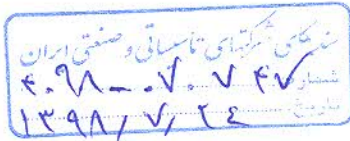 سندیکای شرکتهای تاسیساتی و صنعتی ایران
شماره ۴۰۹۸-۰۷۰۷۴۷
تاریخ ۱۳۹۸/۷/۲۴